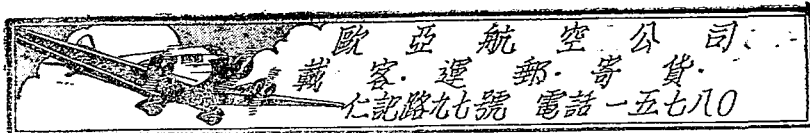 歐亞航空公司
載客·運郵·寄貨·
仁記路九七號 電話一五七八〇